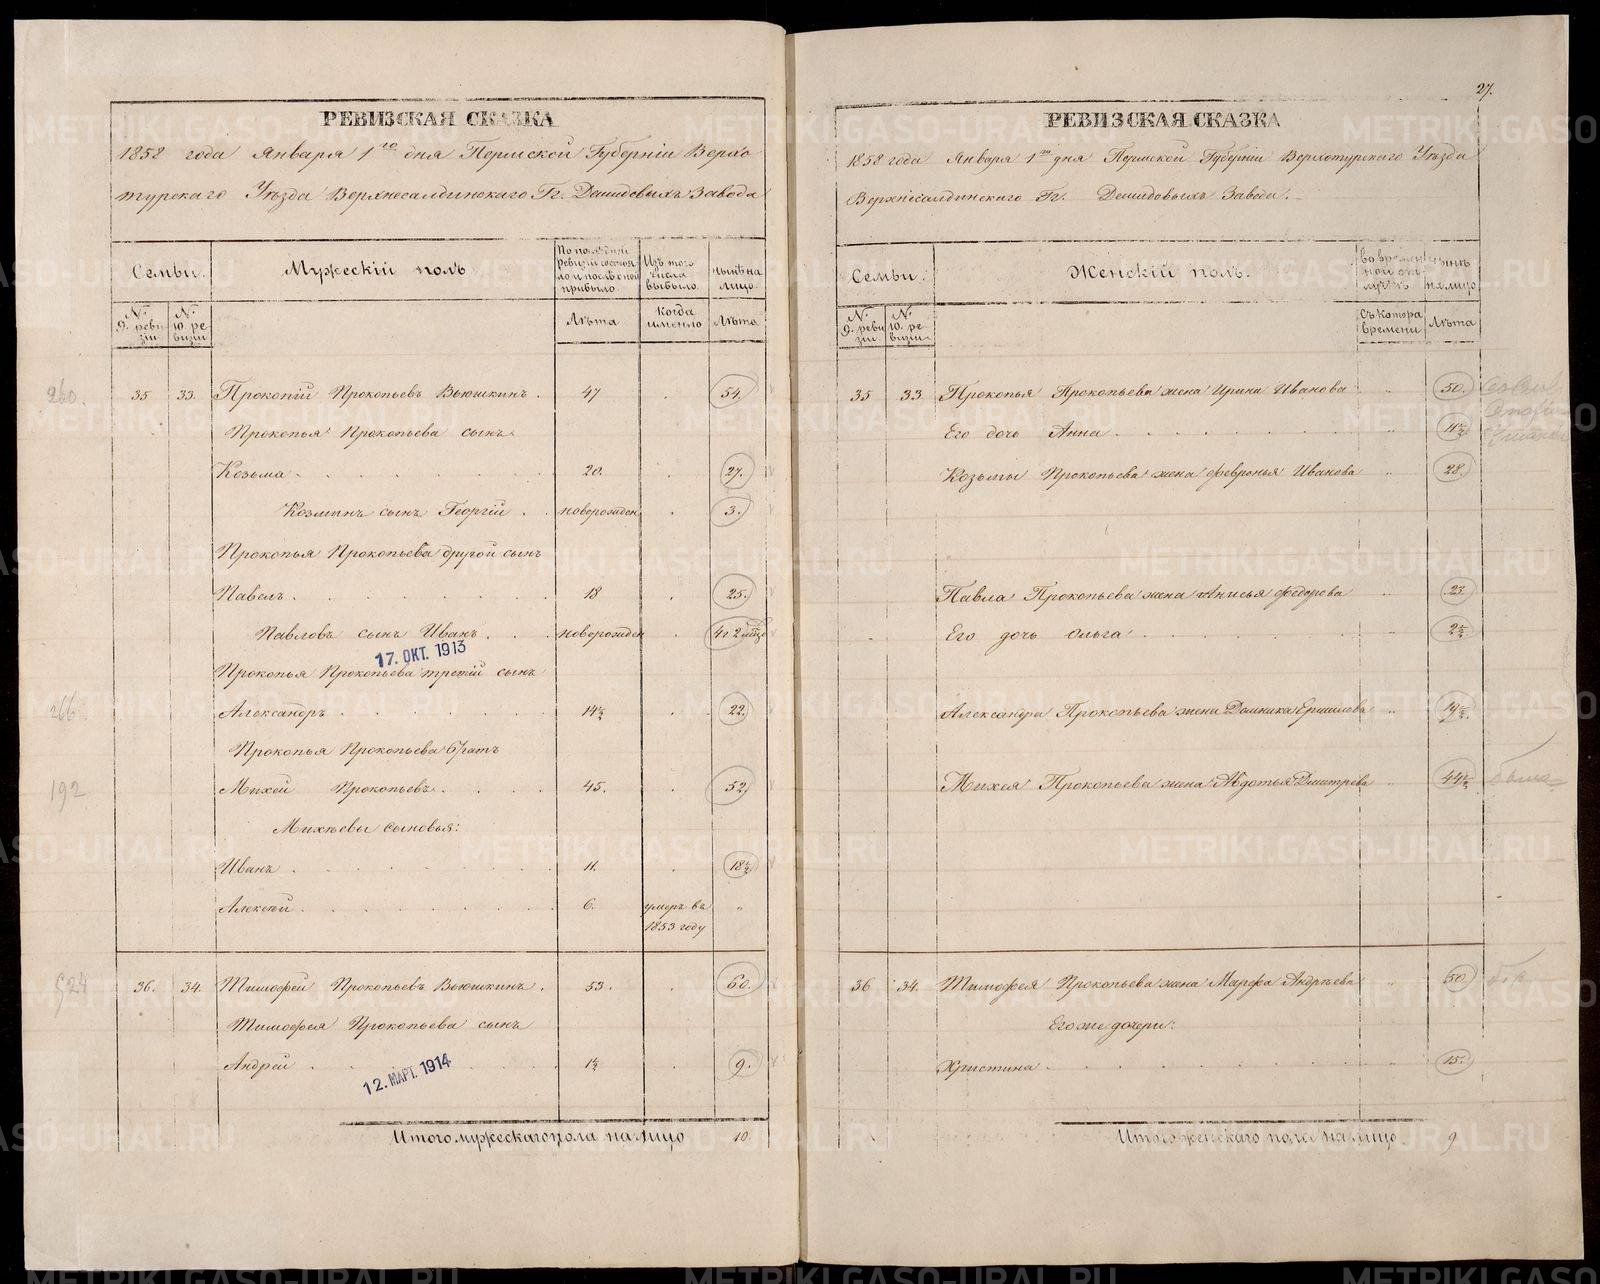 27.
РЕВИЗСКАЯ СКАЗКА
1858 года Января 1го дня Пермской Губерніи Верхо
турскаго Уѣзда Верхнесалдинскаго Гг. Демидовыхъ Завода
Семьи. Мужескій полъ По последней ревизіи состояло и послѣ оной прибыло. Изъ того числа выбыло. нынѣ на лицо.
№ 9. ревизіи № 10. ревизіи Лѣта Когда именно Лѣта
260. 35 33. Прокопій Прокопьевъ Вьюшкинъ. 47 54.
Прокопья Прокопьева сынъ
Козьма 20. 27.
Козминъ сынъ Георгій новорожден 3.
Прокопья Прокопьева другой сынъ
Павелъ 18 25.
Павловъ сынъ Иванъ. новорожден
17. ОКТ. 1913
Прокопья Прокопьева третій сынъ
266. Александръ 14½ 22.
Прокопья Прокопьева братъ
192 Михей Прокопьевъ. 45. 52.
Михѣевы сыновья:
Иванъ 11. 18½
Алексѣй 6. умеръ въ „
1853 году
524 36. 34. Тимофей Прокопьевъ Вьюшкинъ. 53. 60.
Тимофея Прокопьева сынъ
Андрей 1½ 9.
12. МАРТ. 1914
Итого мужескаго пола на лицо 10.
РЕВИЗСКАЯ СКАЗКА
1858 года Января 1го дня Пермской Губерніи Верхотурскаго Уѣзда
Верхнесалдинскаго Гг. Демидовыхъ Завода.
Семьи. Женскій полъ. Во временной отлучкѣ нынѣ на лицо
№ 9. ревизіи № 10. ревизіи Съ котора времени Лѣта
35 33 Прокопья Прокопьева жена Ирина Иванова „ 50.
Его дочь Анна „ 11½
Козьмы Прокопьева жена Февронья Иванова „ 28.
Павла Прокопьева жена Анисья Федорова „ 23.
Его дочь Ольга „ 2½
Александра Прокопьева жена Домника Ермилова „ 19½
Михея Прокопьева жена Авдотья Дмитрева „ 44½
36 34. Тимофея Прокопьева жена Марфа Андрѣева „ 50.
Его же дочери:
Христина „ 15.
Итого женскаго пола на лицо. 9
METRIKI.GASO-URAL.RU